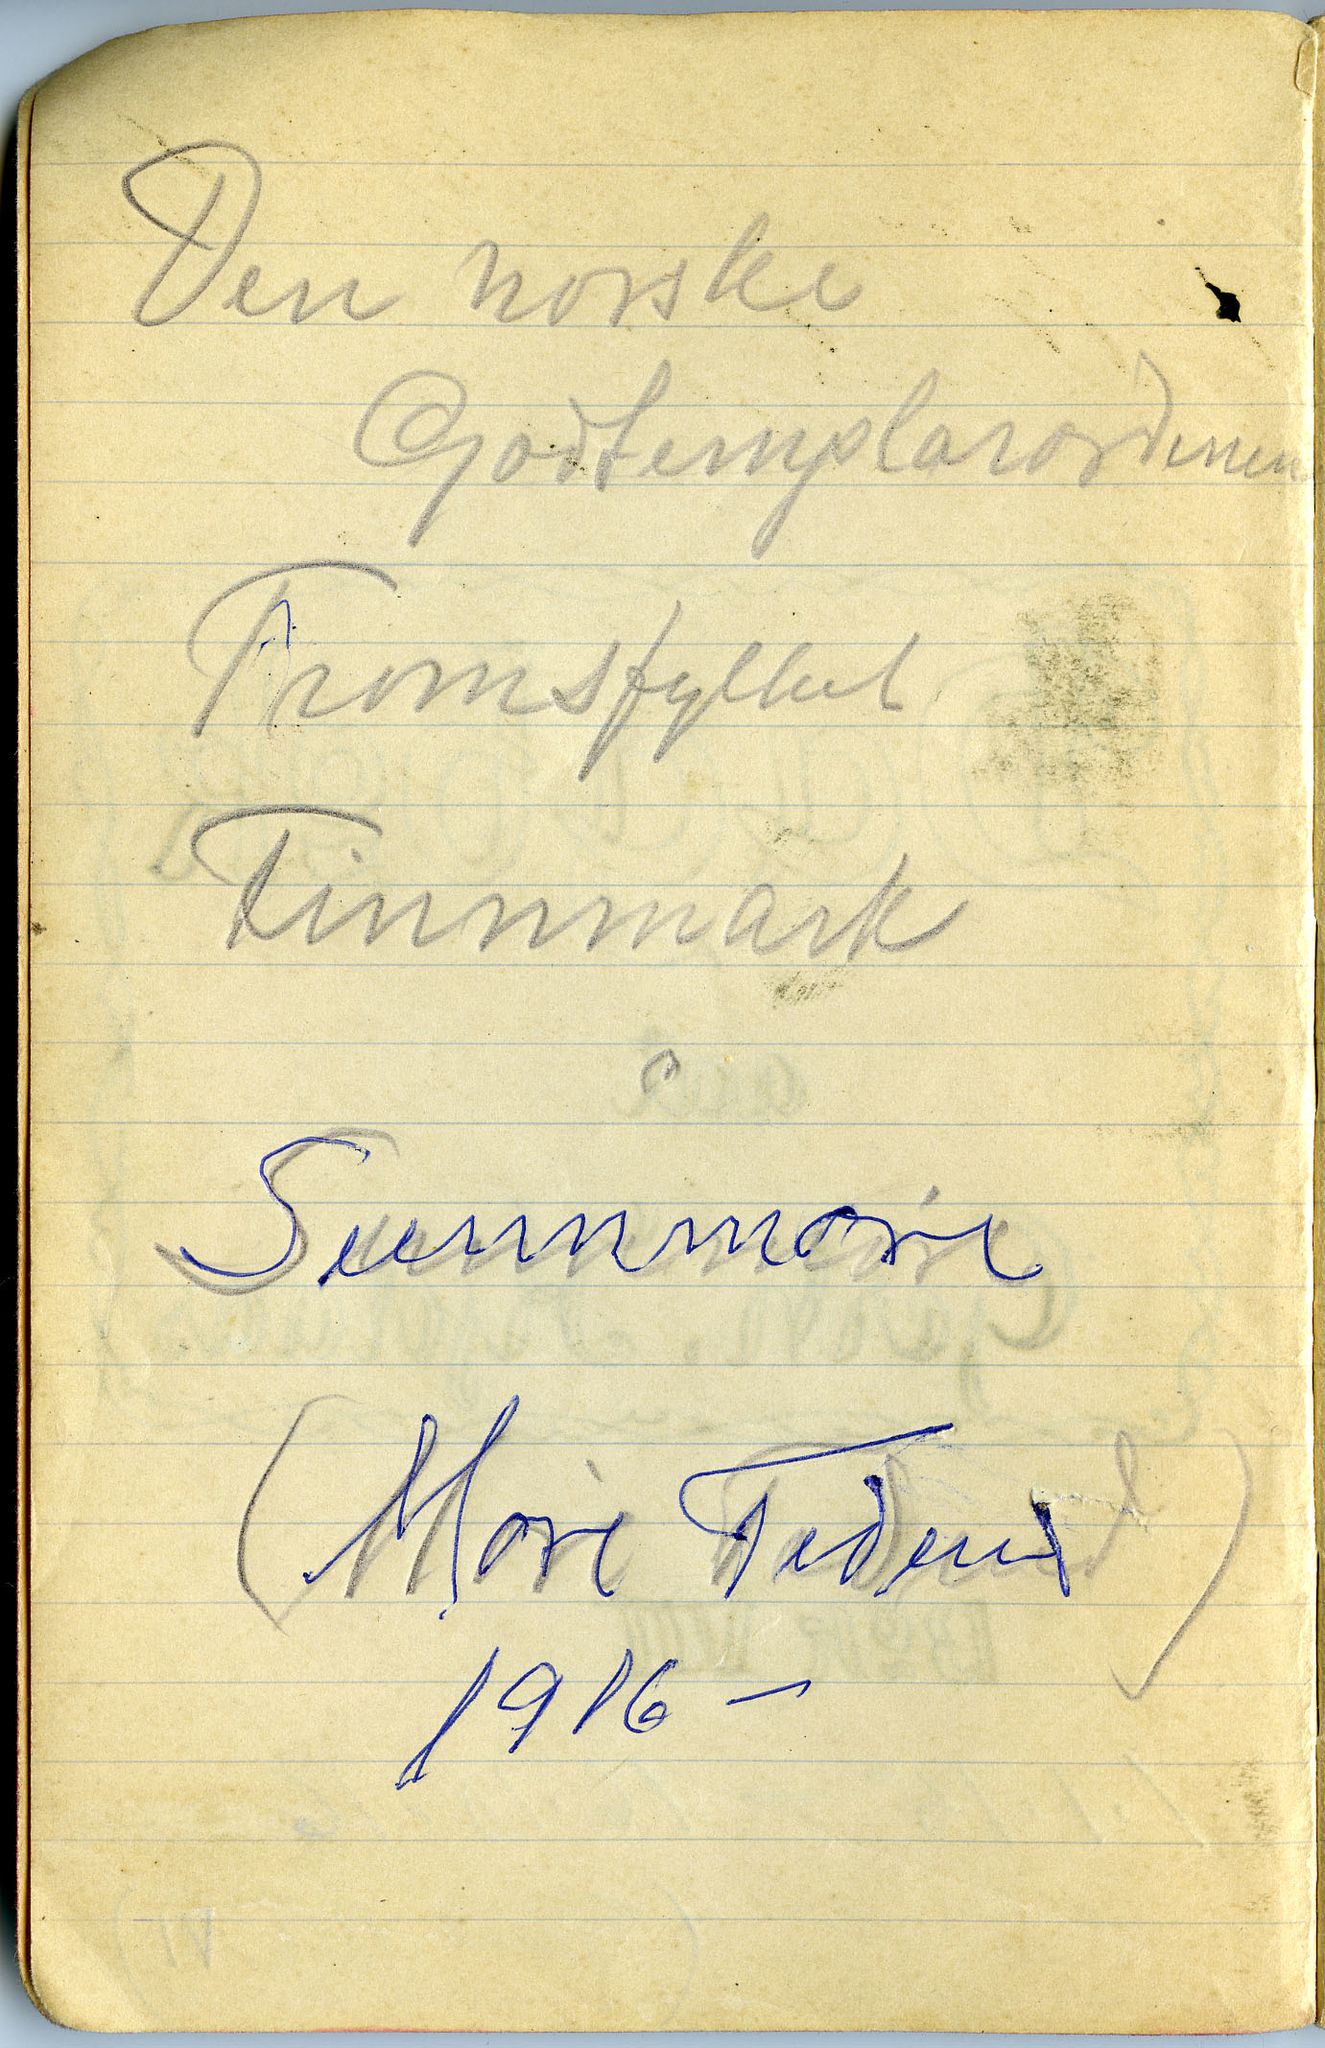 Den norske
Godtemplarordenen
Tromsfylket
Finnmark
Sunnmøre
(Møre
1916 –